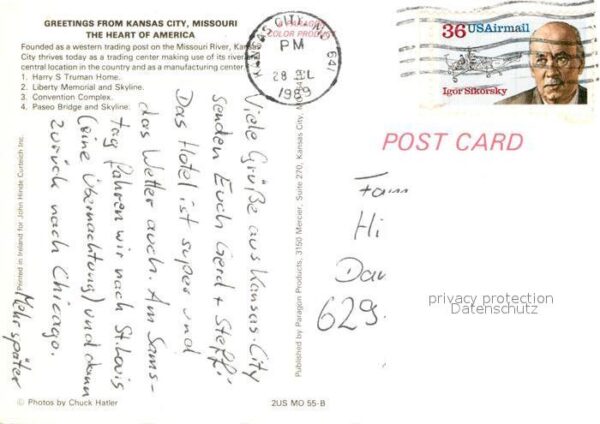 GREETINGS FROM KANSAS CITY, MISSOURI
THE HEART OF AMERICA
Founded as a western trading post on the Missouri River, Kansas
City thrives today as a trading center making use of its river,
central location in the country and as a manufacturing center.
1. Harry S Truman Home.
2. Liberty Memorial and Skyline.
3. Convention Complex.
4. Paseo Bridge and Skyline.
A PARAGON
COLOR PRODUCT
KANSAS CITY, MO 641
PM
28
1989
36 USAirmail
Igor Sikorsky
POST CARD
Viele Grüße aus Kansas-City
senden Euch Gerd + Steffi
Das Hotel ist super und
das Wetter auch. Am Sams-
tag fahren wir nach St. Louis
(eine Übernachtung) und dann
zurück nach Chicago.
Mehr später
Fam
Hi
Dau
629
privacy protection
Datenschutz
Printed in Ireland for John Hinde Curteich Inc.
Published by Paragon Products, 3150 Mercier, Suite 270, Kansas City,
© Photos by Chuck Hatler
2US MO 55-B